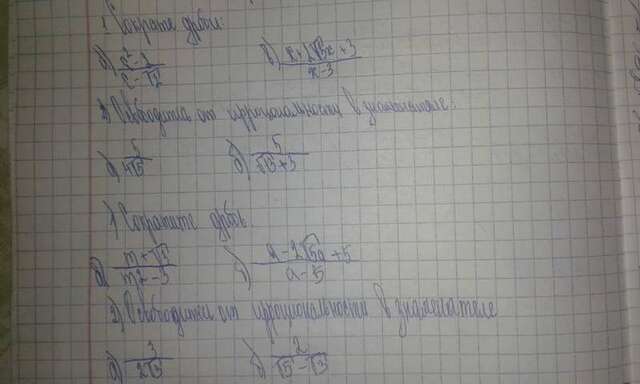 1) Сократите дробь:
а) (c² - 2)/(c - √2) б) (x + 2√3x + 3)/(x - 3)
2) Освободитесь от иррациональности в знаменателе:
а) 5/√15 б) 5/(√6 + 5)
1) Сократите дробь:
а) (m + √5)/(m² - 5) б) (a - 2√5a + 5)/(a - 5)
2) Освободитесь от иррациональности в знаменателе
а) 3/(2√6) б) 2/(√5 - √3)